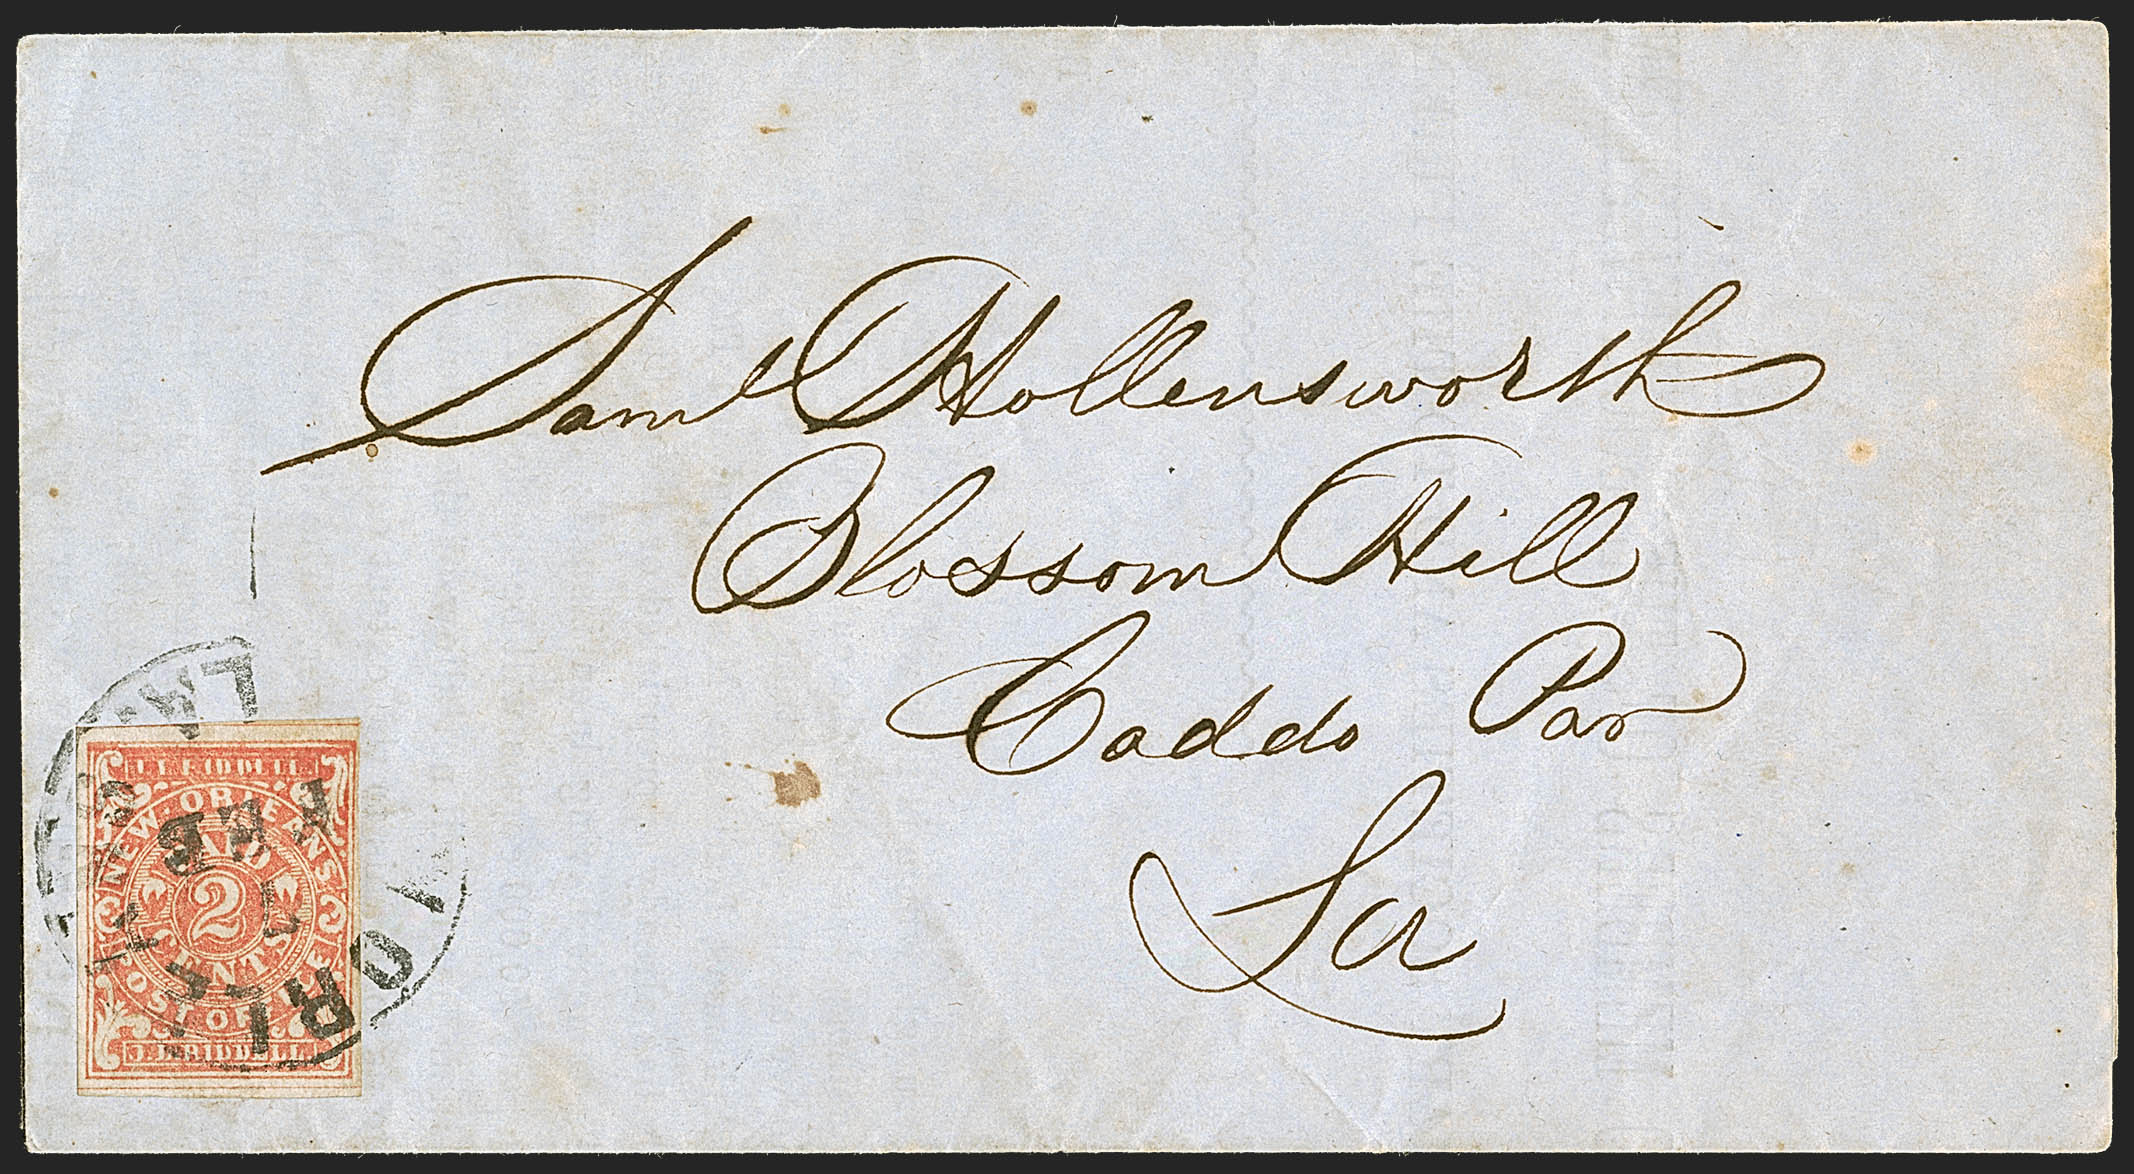 Saml Hollensworth
Blossom Hill
Caddo Par
La
J.L.RIDDELL
NEW·ORLEANS
PAID
2
CENTS
POST OFFICE
J.L.RIDDELL
FEB
LA.